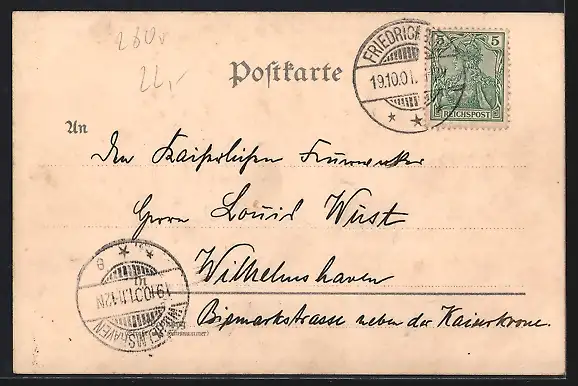 280,
22,-
Postkarte
FRIEDRICH
19.10.01.
5 5
REICHSPOST
An
den Kaiserlichen
Herrn Louis Wüst
Wilhelmshaven
Bismarkstrasse neben der Kaiserkrone.
19.10.01.11-12N
WILHELMSHAVEN